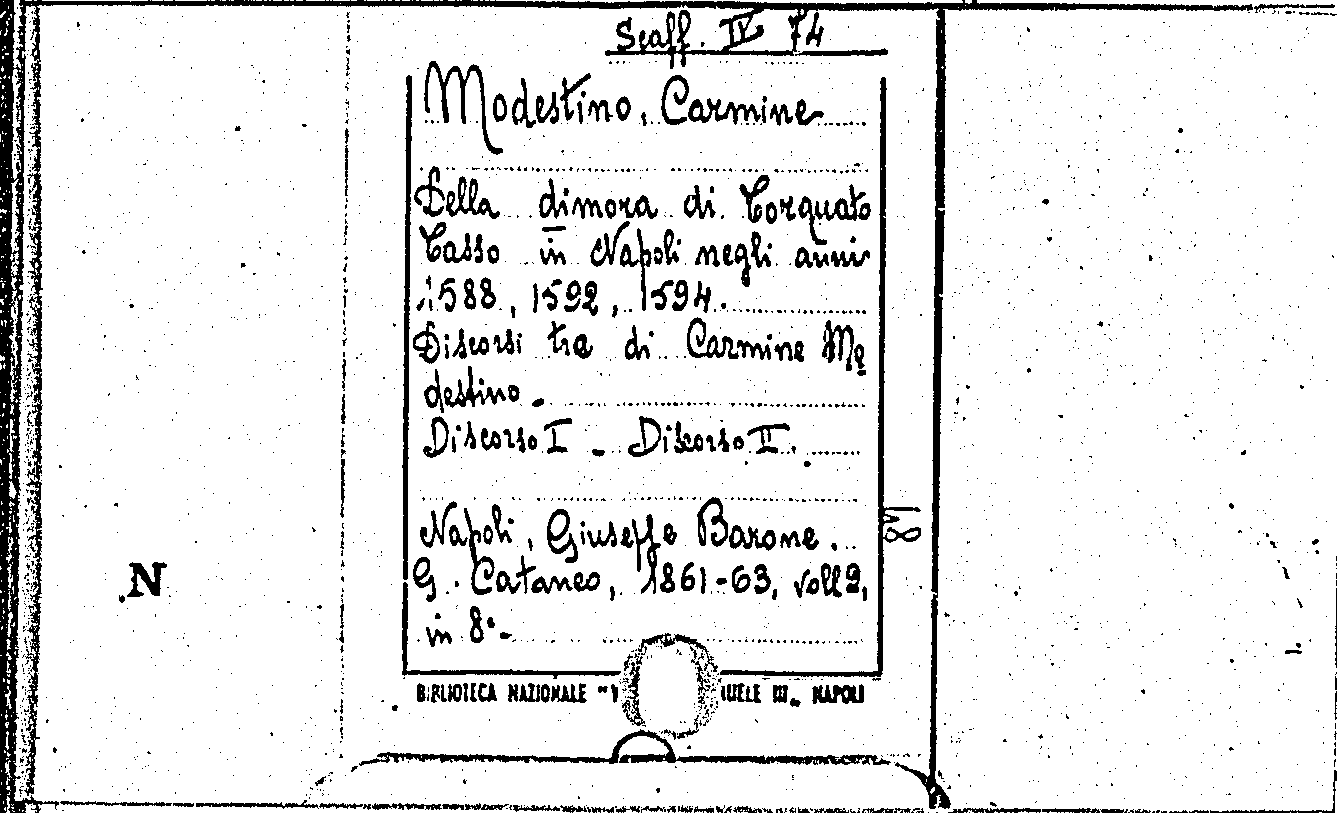 Scaff. IV 74
Modestino, Carmine
Della dimora di Torquato
Tasso in Napoli negli anni
1588, 1592, 1594.
Discorsi tre di Carmine Mo
destino.
Discorso I - Discorso II.
Napoli, Giuseppe Barone.
G. Cataneo, 1861-63, voll 2,
in 8°-
48
N
BIBLIOTECA NAZIONALE "V UELE III„ NAPOLI